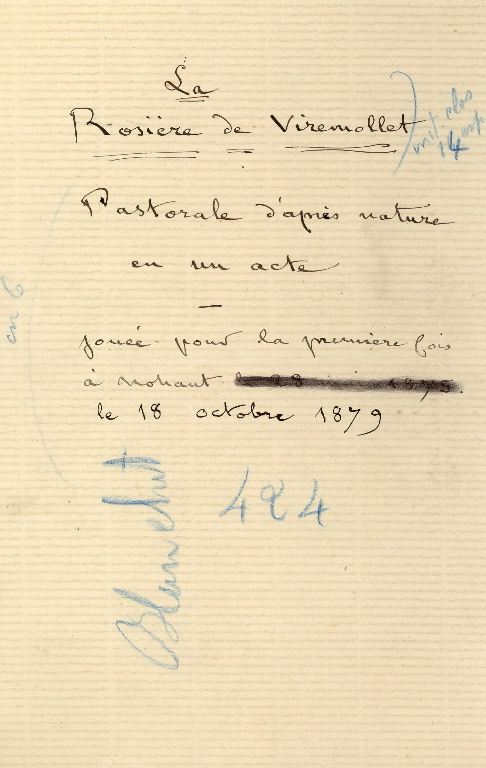 La
Rosière de Viremollet
Pastorale d'après nature
en un acte
jouée pour la première fois
à nohant
le 18 octobre 1879
424
14
en 6